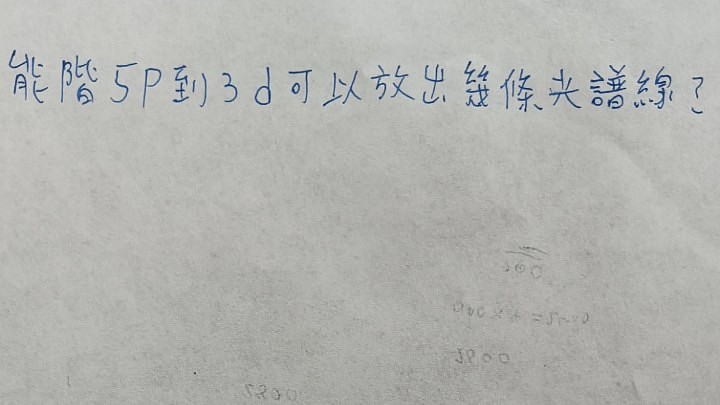 能階5P到3d可以放出幾條光譜線?